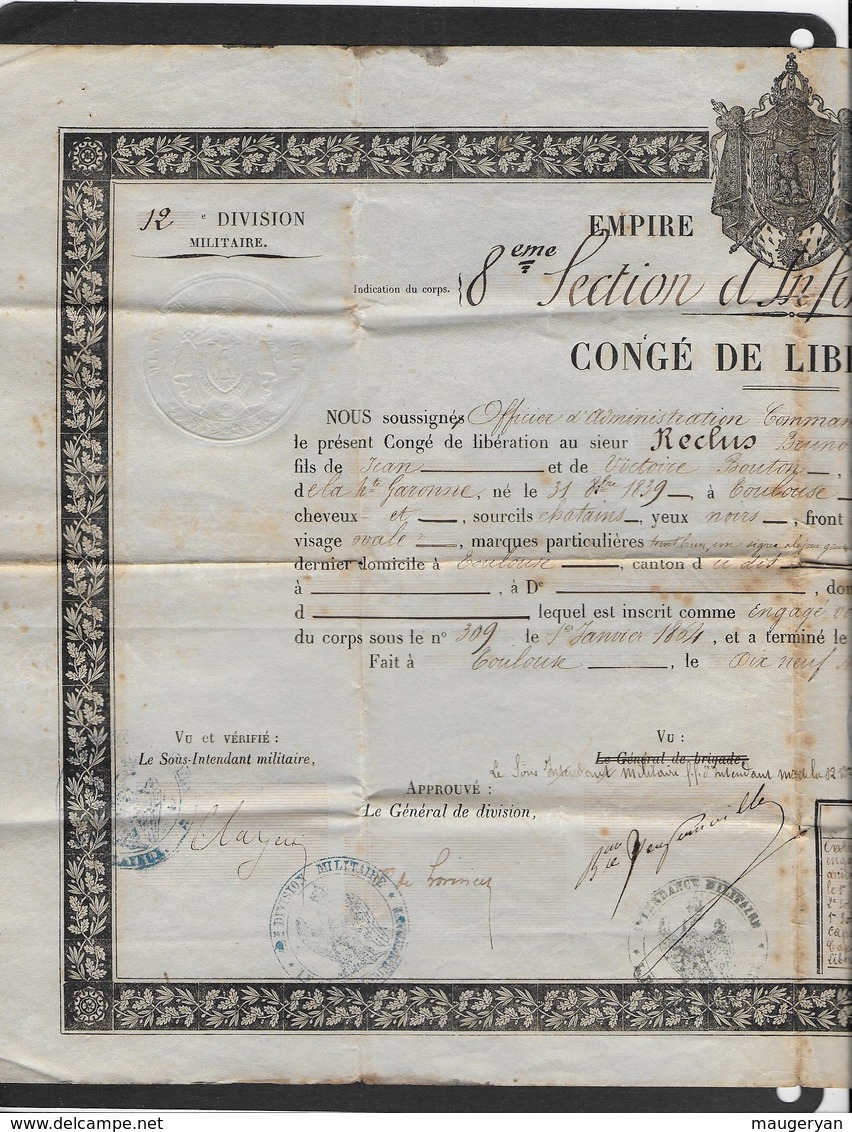 12 e DIVISION
MILITAIRE.
EMPIRE
Indication du corps. { 8eme Section d'Infir
CONGÉ DE LIB
NOUS soussignés Officier d'Administration Comman
le présent Congé de libération au sieur Reclus Bruno
fils de Jean et de Victoire Bouton,
de la hte Garonne, né le 31 Xbre 1839, à Toulouse
cheveux et, sourcils chatains, yeux noirs, front
visage ovale, marques particulières un signe
dernier domicile à Toulouse, canton d u dis
à, à De, don
d, lequel est inscrit comme engagé vo
du corps sous le n° 309 le 1er Janvier 1864, et a terminé le
Fait à Toulouse, le Dix neuf
VU et VÉRIFIÉ :
Le Sous-Intendant militaire,
VU :
Le Général de brigade,
Le Sous Intendant Militaire f.f. d'Intendant Mre de la 12
APPROUVÉ :
Le Général de division,
Bon de
DIVISION MILITAIRE
INTENDANCE MILITAIRE
delcampe.net
maugeryan